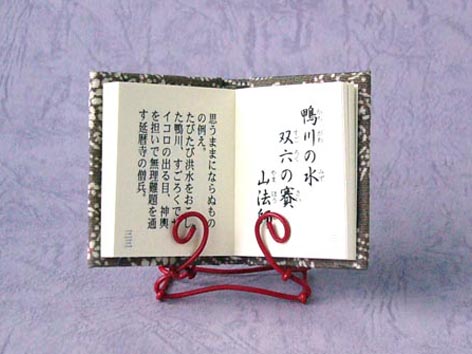 鴨川の水
双六の賽
山法師
思うままにならぬもの
の例え。
たびたび洪水をおこし
た鴨川、すごろくでサ
イコロの出る目、神輿
を担いで無理難題を通
す延暦寺の僧兵。
三三